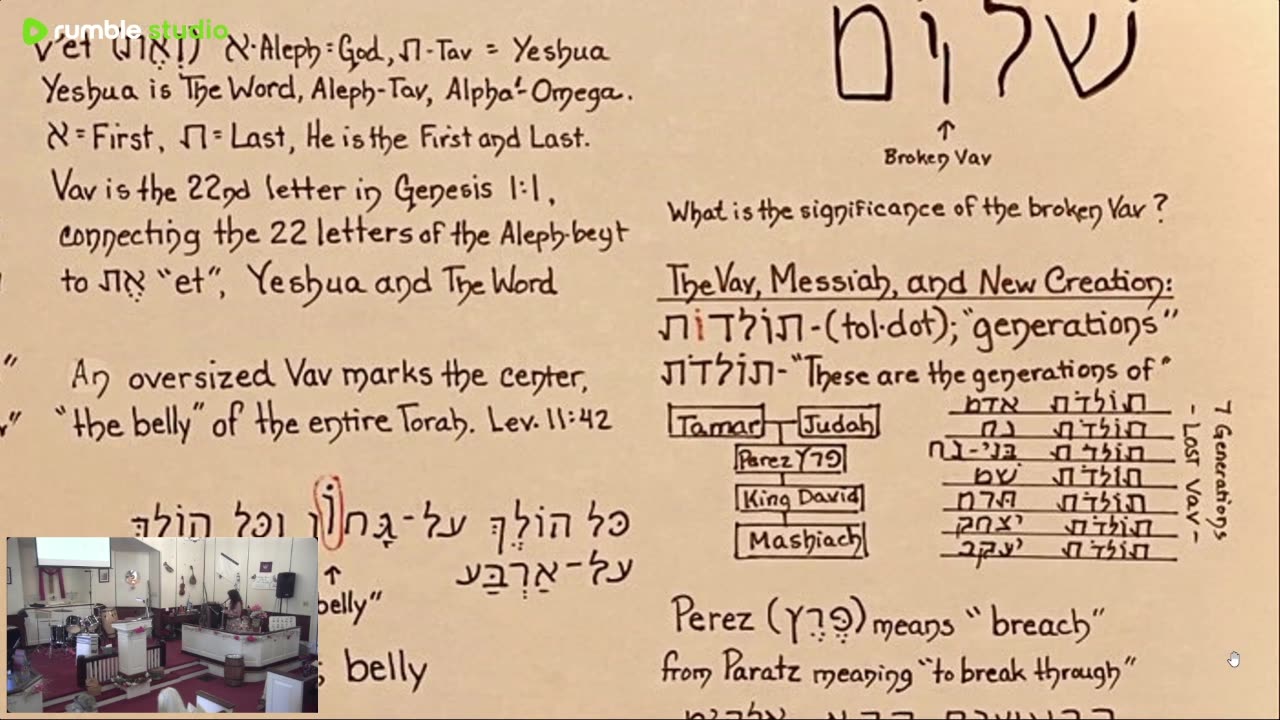 rumble studio
v'et (וְאֵת) א-Aleph=God, ת-Tav = Yeshua
Yeshua is The Word, Aleph-Tav, Alpha-Omega.
א = First, ת = Last, He is the First and Last.
Vav is the 22nd letter in Genesis 1:1,
connecting the 22 letters of the Aleph-beyt
to אֶת "et", Yeshua and The Word
An oversized Vav marks the center,
"the belly" of the entire Torah. Lev. 11:42
כל הוֹלֵךְ על-גָּחוֹן וכל הוֹלֵךְ
על-אַרְבַּע
↑
belly"
; belly
שׁלוֹם
↑
Broken Vav
What is the significance of the broken Vav?
The Vav, Messiah, and New Creation:
תוֹלדוֹת-(tol·dot); "generations"
תוֹלדֹת-"These are the generations of"
Tamar Judah
Perez פרץ
King David
Mashiach
תוֹלדֹת אדם
תוֹלדֹת נח
תוֹלדֹת בני-נח
תוֹלדֹת שׁם
תוֹלדֹת תרח
תוֹלדֹת יצחק
תוֹלדֹת יעקב
7 Generations
- Lost Vav -
Perez (פֶּרֶץ) means "breach"
from Paratz meaning "to break through"